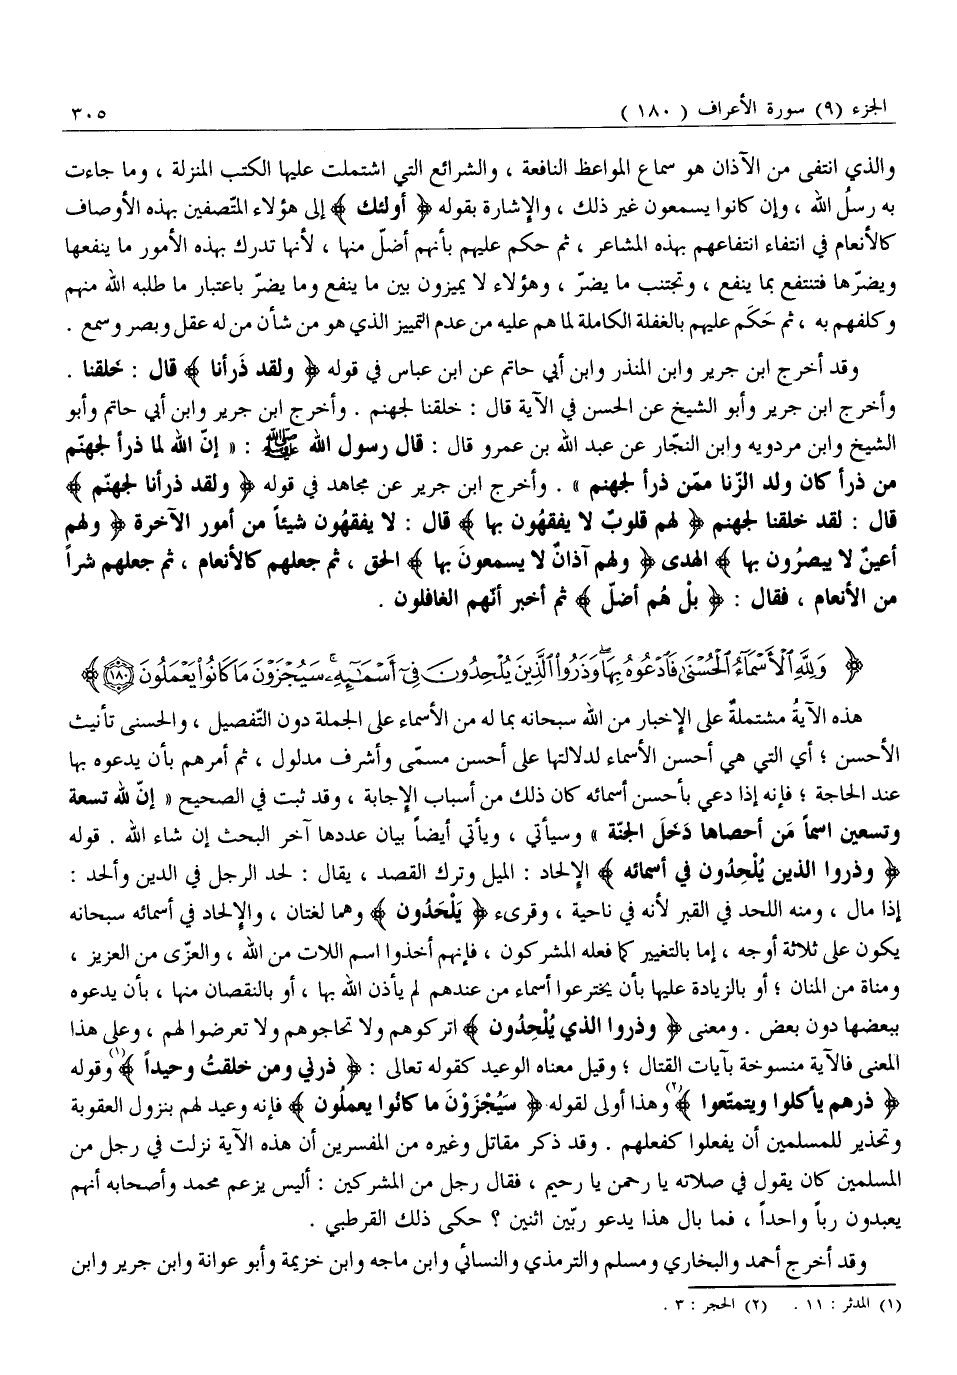 الجزء (٩) سورة الأعراف ( ١٨٠ )
٣٠٥
والذي انتفى من الآذان هو سماع المواعظ النافعة ، والشرائع التي اشتملت عليها الكتب المنزلة ، وما جاءت
به رسلُ الله ، وإن كانوا يسمعون غير ذلك ، والإشارة بقوله ﴿ أولئك ﴾ إلى هؤلاء المتّصفين بهذه الأوصاف
كالأنعام في انتفاء انتفاعهم بهذه المشاعر ، ثم حكم عليهم بأنهم أضلّ منها ، لأنها تدرك بهذه الأمور ما ينفعها
ويضرّها فتنتفع بما ينفع ، وتجتنب ما يضرّ ، وهؤلاء لا يميزون بين ما ينفع وما يضرّ باعتبار ما طلبه الله منهم
وكلفهم به ، ثم حَكَم عليهم بالغفلة الكاملة لما هم عليه من عدم التمييز الذي هو من شأن من له عقل وبصر وسمع .
وقد أخرج ابن جرير وابن المنذر وابن أبي حاتم عن ابن عباس في قوله ﴿ ولقد ذَرأنا ﴾ قال : خَلقنا .
وأخرج ابن جرير وأبو الشيخ عن الحسن في الآية قال : خلقنا لجهنم . وأخرج ابن جرير وابن أبي حاتم وأبو
الشيخ وابن مردويه وابن النجّار عن عبد الله بن عمرو قال : قال رسول الله ﷺ : « إنّ الله لما ذرأ لجهنّم
من ذرأ كان ولد الزّنا ممّن ذرأ لجهنم » . وأخرج ابن جرير عن مجاهد في قوله ﴿ ولقد ذرأنا لجهنّم ﴾
قال : لقد خلقنا لجهنم ﴿ لهم قلوبٌ لا يفقهُون بها ﴾ قال : لا يفقهُون شيئاً من أمور الآخرة ﴿ ولهم
أعينٌ لا يبصرُون بها ﴾ الهدى ﴿ ولهم آذانٌ لا يسمعونَ بها ﴾ الحق ، ثم جعلهم كالأنعام ، ثم جعلهم شراً
من الأنعام ، فقال : ﴿ بلْ هُم أضلّ ﴾ ثم أخبر أنّهم الغافلون .
﴿ وَلِلَّهِ الْأَسْمَاءُ الْحُسْنَىٰ فَادْعُوهُ بِهَا ۖ وَذَرُوا الَّذِينَ يُلْحِدُونَ فِي أَسْمَائِهِ ۚ سَيُجْزَوْنَ مَا كَانُوا يَعْمَلُونَ ١٨٠ ﴾
هذه الآيةُ مشتملةٌ على الإخبار من الله سبحانه بما له من الأسماء على الجملة دون التّفصيل ، والحسنى تأنيث
الأحسن ؛ أي التي هي أحسن الأسماء لدلالتها على أحسن مسمّى وأشرف مدلول ، ثم أمرهم بأن يدعوه بها
عند الحاجة ؛ فإنه إذا دعي بأحسن أسمائه كان ذلك من أسباب الإجابة ، وقد ثبت في الصحيح « إنّ لله تسعة
وتسعين اسماً مَن أحصاها دَخَلَ الجنّة » وسيأتي ، ويأتي أيضاً بيان عددها آخر البحث إن شاء الله . قوله
﴿ وذروا الذين يُلْحِدُون في أسمائه ﴾ الإلحاد : الميل وترك القصد ، يقال : لحد الرجل في الدين وألحد :
إذا مال ، ومنه اللحد في القبر لأنه في ناحية ، وقرىء ﴿ يَلْحَدُون ﴾ وهما لغتان ، والإلحاد في أسمائه سبحانه
يكون على ثلاثة أوجه ، إما بالتغيير كما فعله المشركون ، فإنهم أخذوا اسم اللات من الله ، والعزّى من العزيز ،
ومناة من المنان ؛ أو بالزيادة عليها بأن يخترعوا أسماء من عندهم لم يأذن الله بها ، أو بالنقصان منها ، بأن يدعوه
ببعضها دون بعض . ومعنى ﴿ وذروا الذي يُلْحِدُون ﴾ اتركوهم ولا تحاجوهم ولا تعرضوا لهم ، وعلى هذا
المعنى فالآية منسوخة بآيات القتال ؛ وقيل معناه الوعيد كقوله تعالى : ﴿ ذرني ومن خلقتُ وحيداً ﴾(١) وقوله
﴿ ذرهم يأكلوا ويتمتّعوا ﴾(٢) وهذا أولى لقوله ﴿ سَيُجْزَوْنَ ما كانُوا يعملُون ﴾ فإنه وعيد لهم بنزول العقوبة
وتحذير للمسلمين أن يفعلوا كفعلهم . وقد ذكر مقاتل وغيره من المفسرين أن هذه الآية نزلت في رجل من
المسلمين كان يقول في صلاته يا رحمن يا رحيم ، فقال رجل من المشركين : أليس يزعم محمد وأصحابه أنهم
يعبدون رباً واحداً ، فما بال هذا يدعو ربّين اثنين ؟ حكى ذلك القرطبي .
وقد أخرج أحمد والبخاري ومسلم والترمذي والنسائي وابن ماجه وابن خزيمة وأبو عوانة وابن جرير وابن
(١) المدثر : ١١ . (٢) الحجر : ٣ .